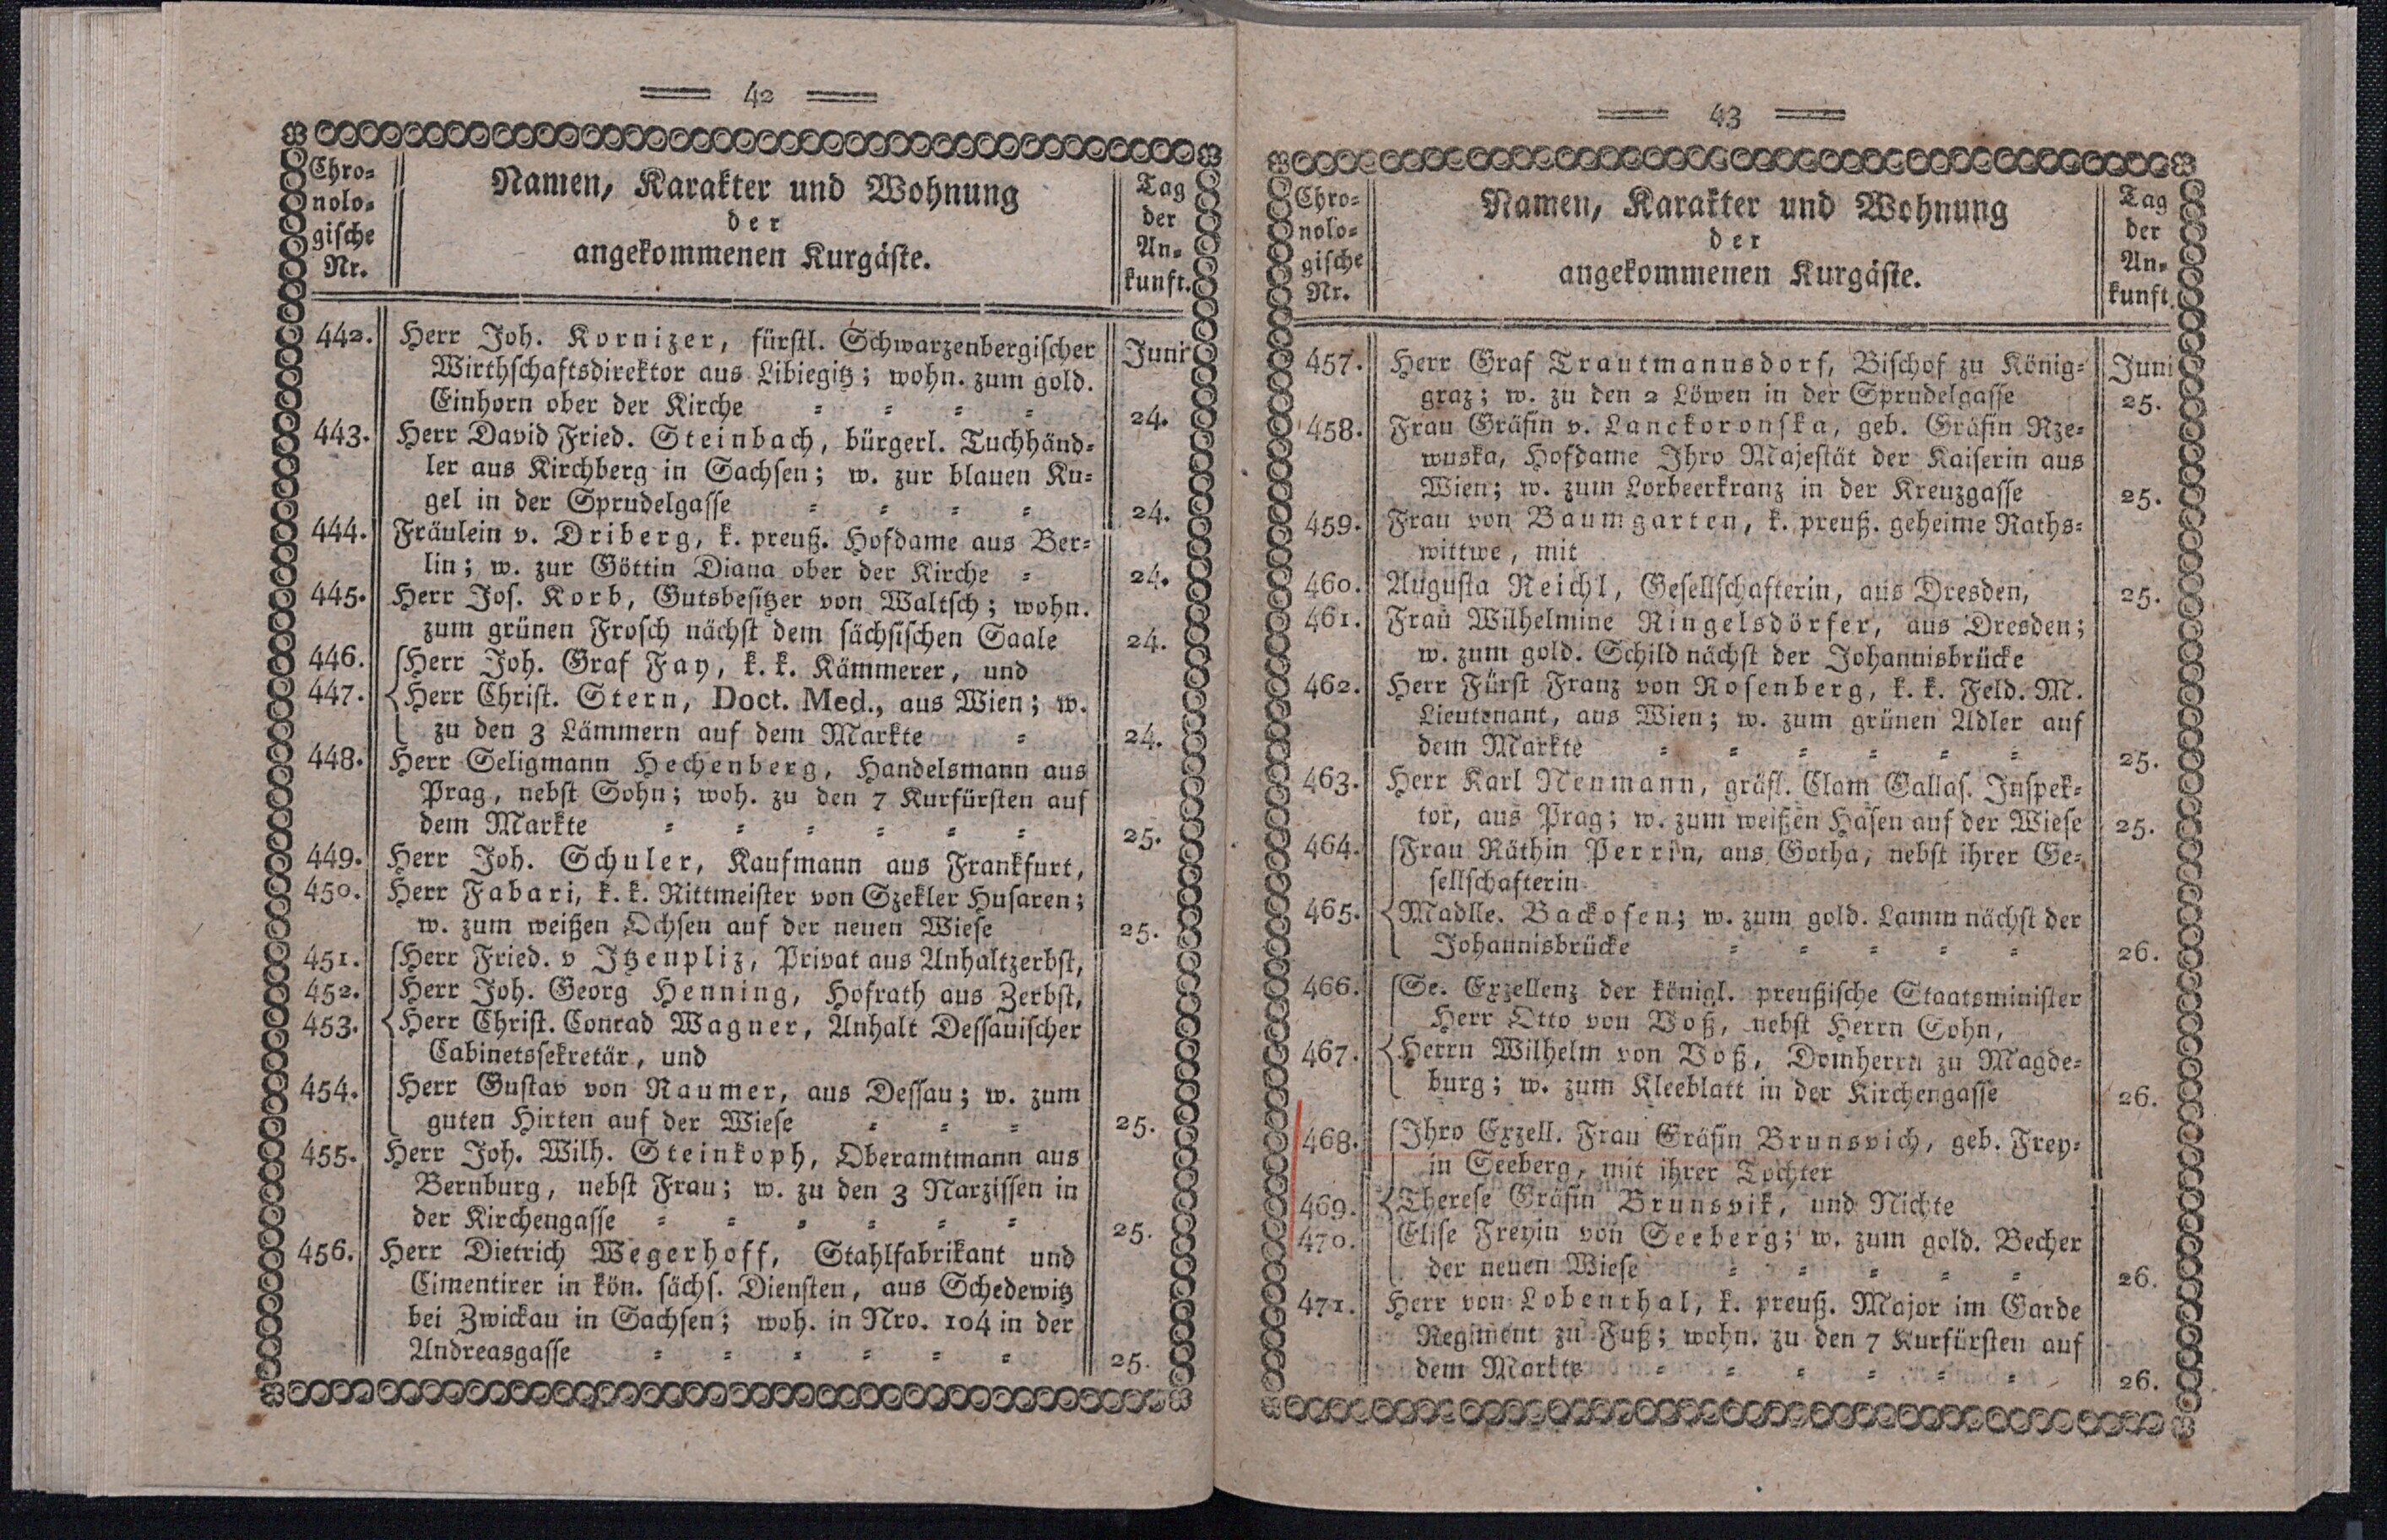 42
Chro-
nolo-
gische
Nr.
Namen, Karakter und Wohnung
der
angekommenen Kurgäste.
Tag
der
An-
kunft.
442. Herr Joh. Kornizer, fürstl. Schwarzenbergischer Juni
Wirthschaftsdirektor aus Libiegitz; wohn. zum gold.
Einhorn ober der Kirche - - - - 24.
443. Herr David Fried. Steinbach, bürgerl. Tuchhänd-
ler aus Kirchberg in Sachsen; w. zur blauen Ku-
gel in der Sprudelgasse - - - - 24.
444. Fräulein v. Driberg, k. preuß. Hofdame aus Ber-
lin; w. zur Göttin Diana ober der Kirche - 24.
445. Herr Jos. Korb, Gutsbesitzer von Waltsch; wohn.
zum grünen Frosch nächst dem sächsischen Saale 24.
446. Herr Joh. Graf Fay, k. k. Kämmerer, und
447. Herr Christ. Stern, Doct. Med., aus Wien; w.
zu den 3 Lämmern auf dem Markte - 24.
448. Herr Seligmann Hechenberg, Handelsmann aus
Prag, nebst Sohn; woh. zu den 7 Kurfürsten auf
dem Markte - - - - - - 25.
449. Herr Joh. Schuler, Kaufmann aus Frankfurt,
450. Herr Fabari, k. k. Rittmeister von Szekler Husaren;
w. zum weißen Ochsen auf der neuen Wiese 25.
451. Herr Fried. v Itzenpliz, Privat aus Anhaltzerbst,
452. Herr Joh. Georg Henning, Hofrath aus Zerbst,
453. Herr Christ. Conrad Wagner, Anhalt Dessauischer
Cabinetssekretär, und
454. Herr Gustav von Raumer, aus Dessau; w. zum
guten Hirten auf der Wiese - - - 25.
455. Herr Joh. Wilh. Steinkoph, Oberamtmann aus
Bernburg, nebst Frau; w. zu den 3 Narzissen in
der Kirchengasse - - - - - - 25.
456. Herr Dietrich Wegerhoff, Stahlfabrikant und
Cimentirer in kön. sächs. Diensten, aus Schedewitz
bei Zwickau in Sachsen; woh. in Nro. 104 in der
Andreasgasse - - - - - - 25.
43
Chro-
nolo-
gische
Nr.
Namen, Karakter und Wohnung
der
angekommenen Kurgäste.
Tag
der
An-
kunft.
457. Herr Graf Trautmannsdorf, Bischof zu König- Juni
graz; w. zu den 2 Löwen in der Sprudelgasse 25.
458. Frau Gräfin v. Lanckoronska, geb. Gräfin Rze-
wuska, Hofdame Ihro Majestät der Kaiserin aus
Wien; w. zum Lorbeerkranz in der Kreuzgasse 25.
459. Frau von Baumgarten, k. preuß. geheime Raths-
wittwe, mit
460. Augusta Reichl, Gesellschafterin, aus Dresden, 25.
461. Frau Wilhelmine Ringelsdörfer, aus Dresden;
w. zum gold. Schild nächst der Johannisbrücke
462. Herr Fürst Franz von Rosenberg, k. k. Feld. M.
Lieutenant, aus Wien; w. zum grünen Adler auf
dem Markte - - - - - - 25.
463. Herr Karl Neumann, gräfl. Clam Gallas. Inspek-
tor, aus Prag; w. zum weißen Hasen auf der Wiese 25.
464. Frau Räthin Perrin, aus Gotha, nebst ihrer Ge-
sellschafterin
465. Madlle. Backofen; w. zum gold. Lamm nächst der
Johannisbrücke - - - - - 26.
466. Se. Exzellenz der königl. preußische Staatsminister
Herr Otto von Voß, nebst Herrn Sohn,
467. Herrn Wilhelm von Voß, Domherrn zu Magde-
burg; w. zum Kleeblatt in der Kirchengasse 26.
468. Ihro Exzell. Frau Gräfin Brunsvich, geb. Frey-
in Seeberg, mit ihrer Tochter
469. Therese Gräfin Brunsvik, und Nichte
470. Elise Freyin von Seeberg; w. zum gold. Becher
der neuen Wiese - - - - - 26.
471. Herr von Lobenthal, k. preuß. Major im Garde
Regiment zu Fuß; wohn. zu den 7 Kurfürsten auf
dem Markte - - - - - - 26.